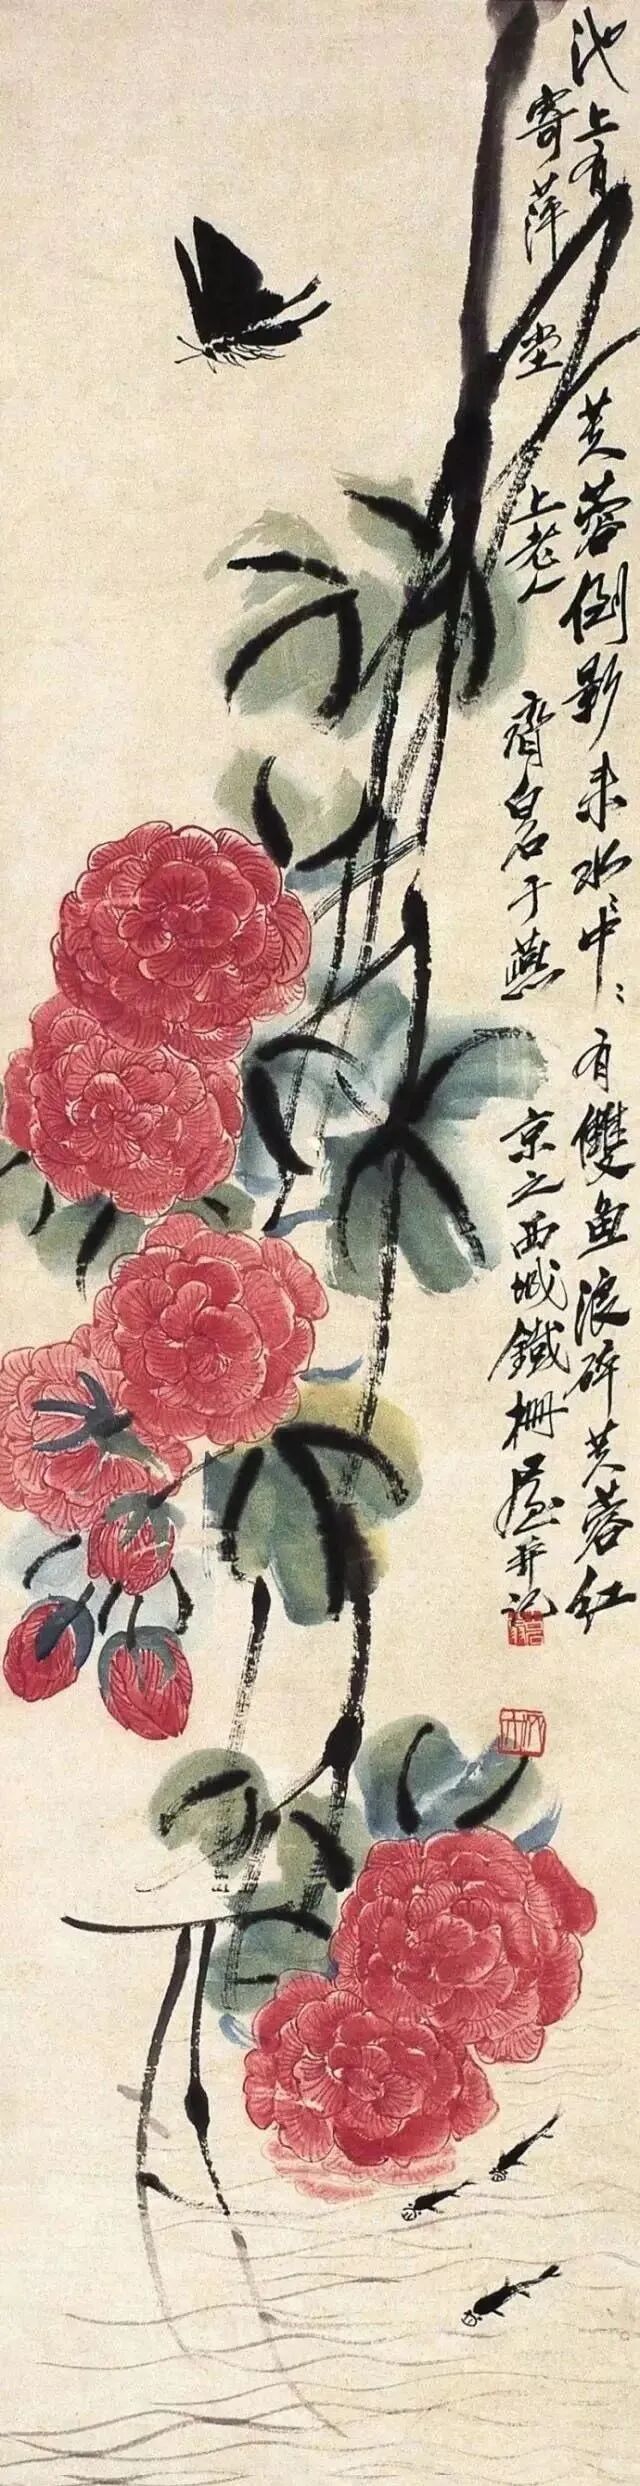 池上有芙蓉倒影來水〻中〻有雙魚浪碎芙蓉紅
寄萍堂上老人齊白石于燕京之西城鐵柵屋并記